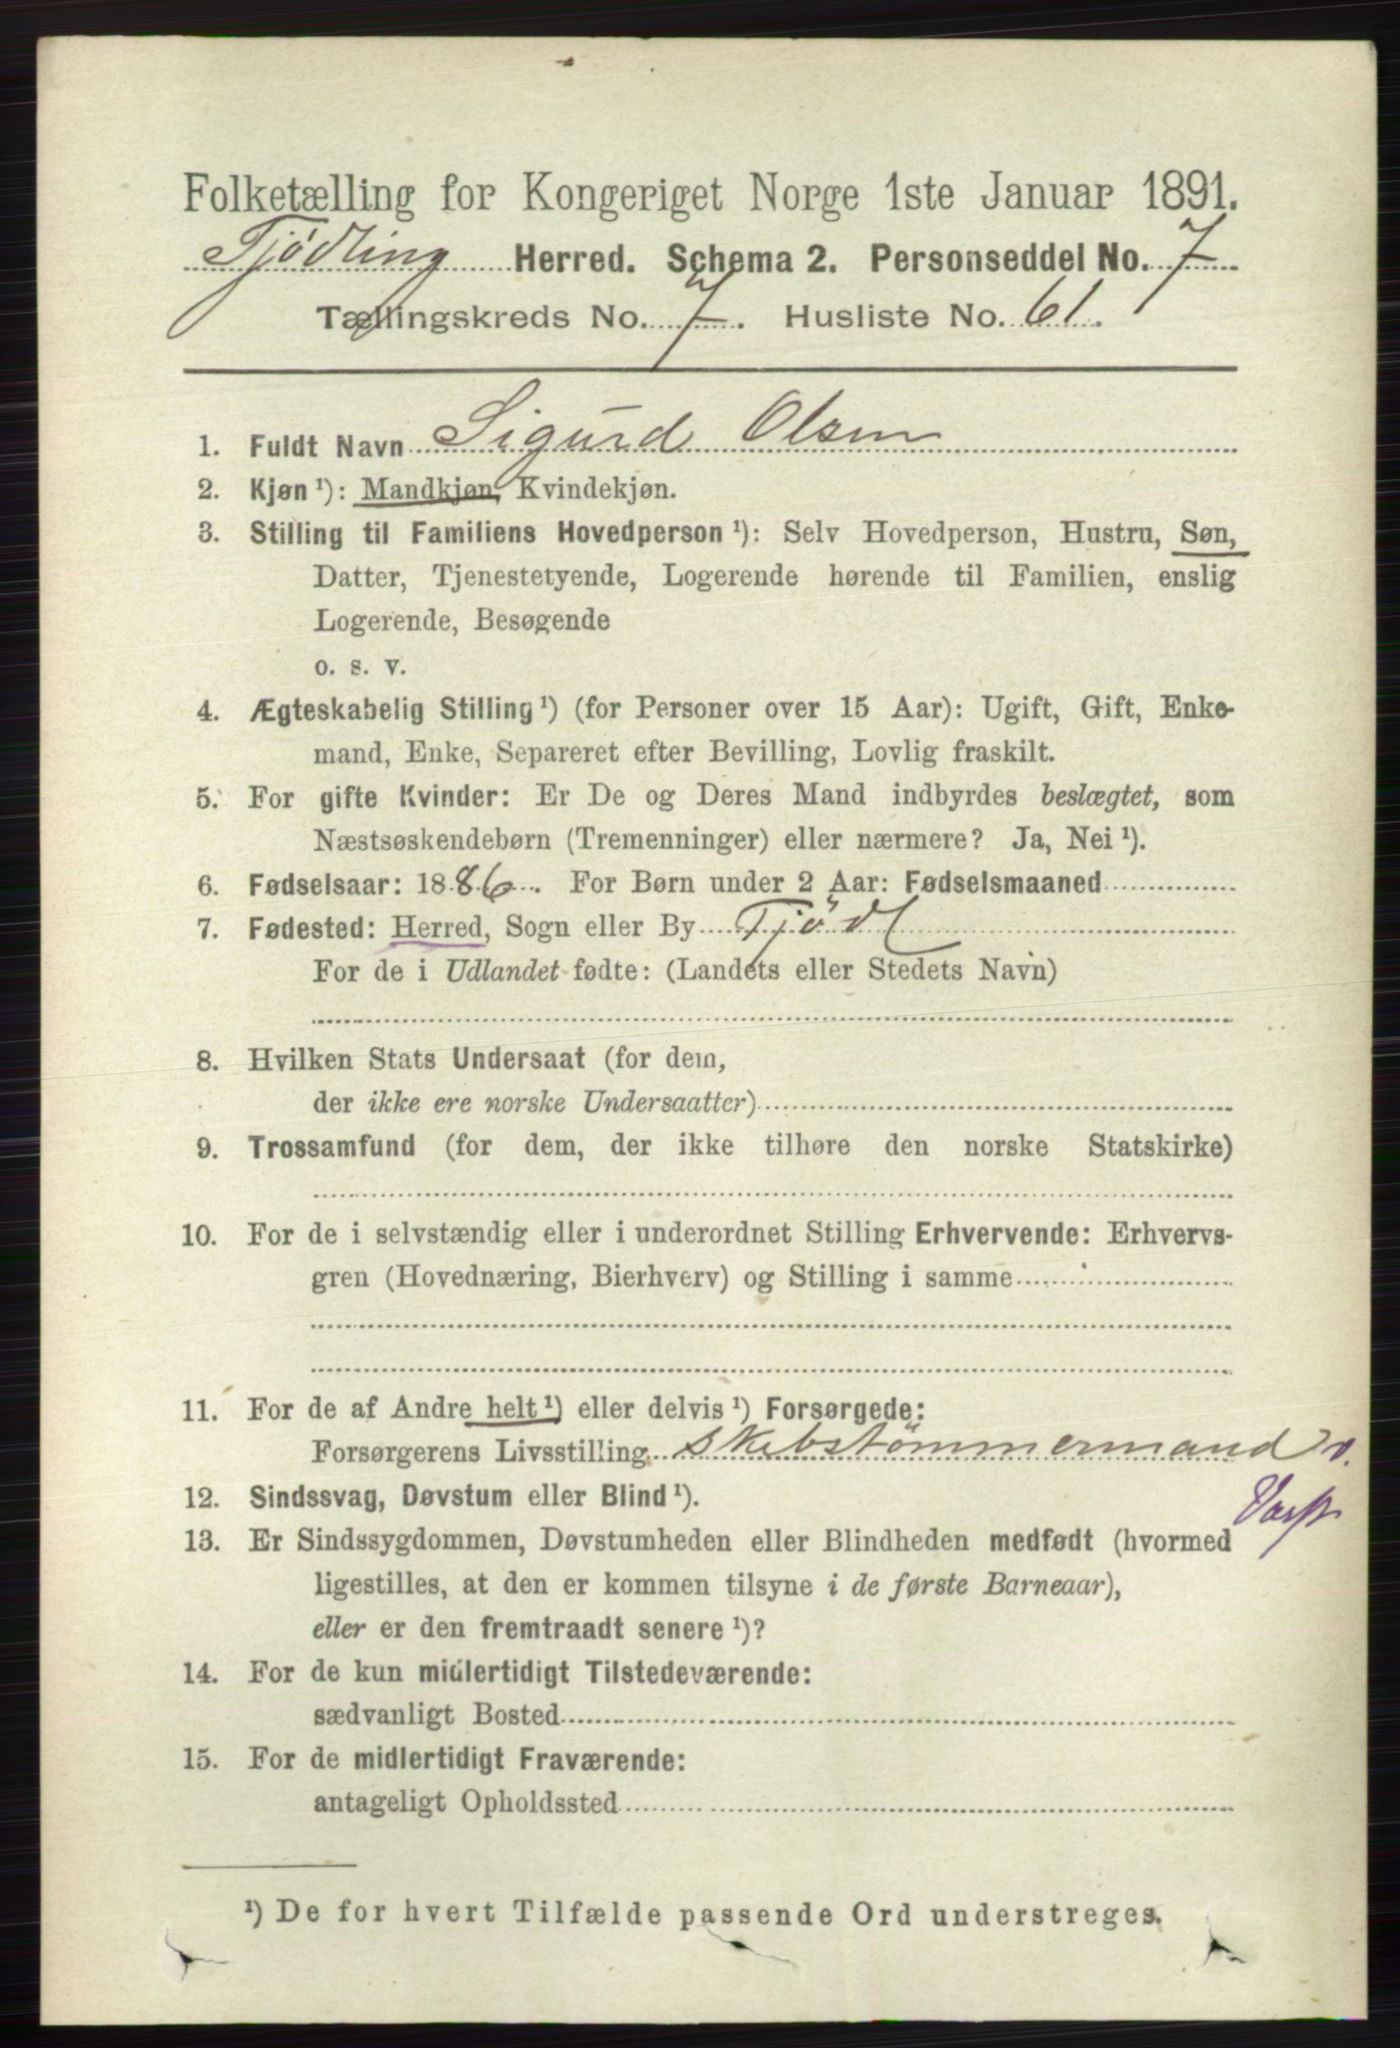 Folketælling for Kongeriget Norge 1ste Januar 1891.
Tjødling Herred. Schema 2. Personseddel No. 7
Tællingskreds No. 7. Husliste No. 61.
1. Fuldt Navn Sigurd Olsen
2. Kjøn ¹): Mandkjøn, Kvindekjøn.
3. Stilling til Familiens Hovedperson ¹): Selv Hovedperson, Hustru, Søn,
Datter, Tjenestetyende, Logerende hørende til Familien, enslig
Logerende, Besøgende
o. s. v.
4. Ægteskabelig Stilling ¹) (for Personer over 15 Aar): Ugift, Gift, Enke-
mand, Enke, Separeret efter Bevilling, Lovlig fraskilt.
5. For gifte Kvinder: Er De og Deres Mand indbyrdes beslægtet, som
Næstsøskendebørn (Tremenninger) eller nærmere? Ja, Nei ¹).
6. Fødselsaar: 1886. For Børn under 2 Aar: Fødselsmaaned
7. Fødested: Herred, Sogn eller By Tjødl
For de i Udlandet fødte: (Landets eller Stedets Navn)
8. Hvilken Stats Undersaat (for dem,
der ikke ere norske Undersaatter)
9. Trossamfund (for dem, der ikke tilhøre den norske Statskirke)
10. For de i selvstændig eller i underordnet Stilling Erhvervende: Erhvervs-
gren (Hovednæring, Bierhverv) og Stilling i samme
11. For de af Andre helt ¹) eller delvis ¹) Forsørgede:
Forsørgerens Livsstilling skibstømmermand v.
12. Sindssvag, Døvstum eller Blind ¹).
13. Er Sindssygdommen, Døvstumheden eller Blindheden medfødt (hvormed
ligestilles, at den er kommen tilsyne i de første Barneaar),
eller er den fremtraadt senere ¹)?
14. For de kun midlertidigt Tilstedeværende:
sædvanligt Bosted
15. For de midlertidigt Fraværende:
antageligt Opholdssted
¹) De for hvert Tilfælde passende Ord understreges.